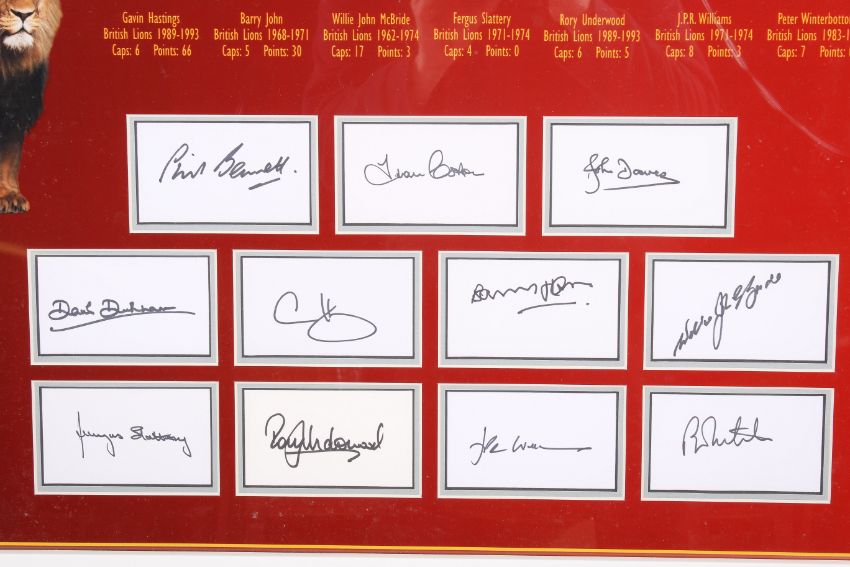 Gavin Hastings
British Lions 1989-1993
Caps: 6 Points: 66
Barry John
British Lions 1968-1971
Caps: 5 Points: 30
Willie John McBride
British Lions 1962-1974
Caps: 17 Points: 3
Fergus Slattery
British Lions 1971-1974
Caps: 4 Points: 0
Rory Underwood
British Lions 1989-1993
Caps: 6 Points: 5
J.P.R. Williams
British Lions 1971-1974
Caps: 8 Points: 3
Peter Winterbotto
British Lions 1983-1
Caps: 7 Points:
Phil Bennett.
John Dawes
Barry John
Willie John McBride
Fergus Slattery
Rory Underwood